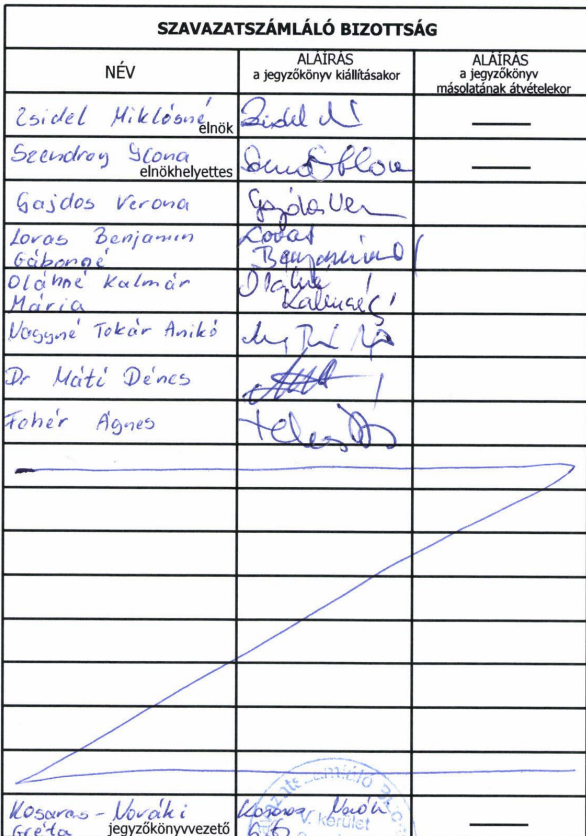 SZAVAZATSZÁMLÁLÓ BIZOTTSÁG
NÉV
ALÁÍRÁS
a jegyzőkönyv kiállításakor
ALÁÍRÁS
a jegyzőkönyv
másolatának átvételekor
Zsidel Miklósné
elnök
Zsidel M
Szendrey Ilona
elnökhelyettes
Gajdos Verona
Gajdos Ver
Lovas Benjamin
Gáborné
Lovas
Benjamin
Oláhné Kalmár
Mária
Oláhné
Kalmár
Nagyné Tokár Anikó
Dr Máti Dénes
Fehér Ágnes
Kosaras - Nováki
Gréta jegyzőkönyvvezető
Kosaras Nováki
V. kerület